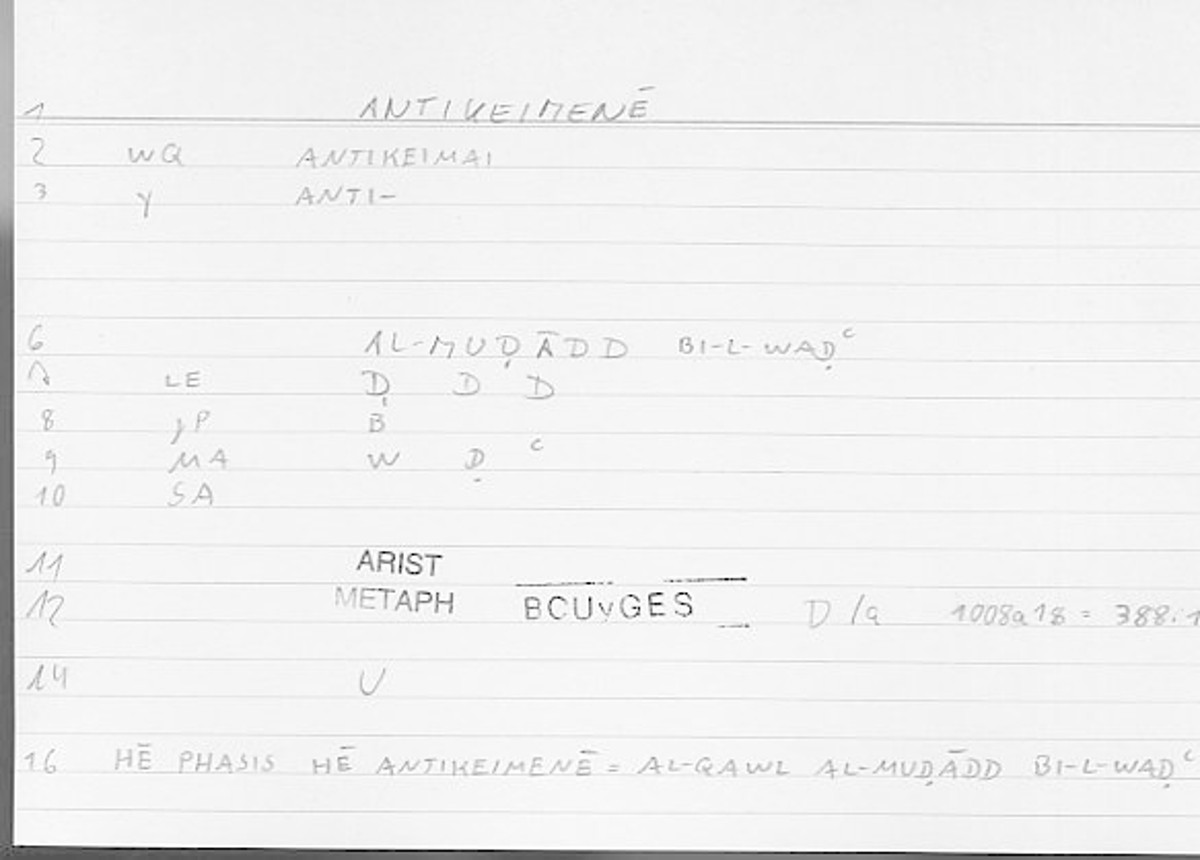 1 ANTIKEIMENĒ
2 WQ ANTIKEIMAI
3 γ ANTI-
6 AL-MUḌĀDD BI-L-WAḌᶜ
7 LE Ḍ D D
8 γP B
9 MA W Ḍ ᶜ
10 SA
11 ARIST
12 METAPH BOUyGES D/a 1008a18 = 388.1
14 U
16 HĒ PHASIS HĒ ANTIKEIMENĒ = AL-QAWL AL-MUḌĀDD BI-L-WAḌᶜ